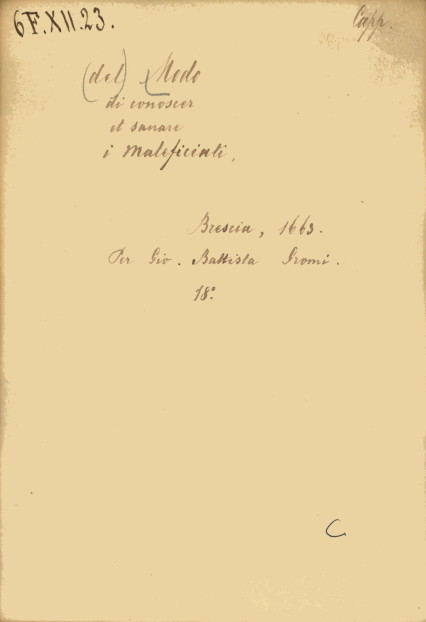 6F.XII.23.
Capp.
(del) Modo
di conoscer
et sanare
i Maleficiati,
Brescia, 1663.
Per Gio. Battista Gromi.
18º
C